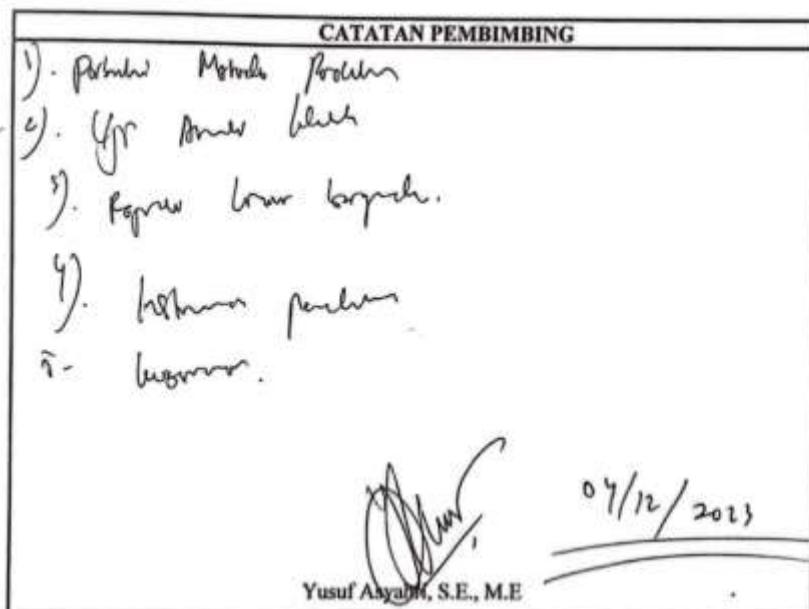 CATATAN PEMBIMBING
1). Perbaiki Metode Penelitian
2). Uji Asumsi klasik
3). Regresi linier berganda.
4). Instrumen penelitian
5- kuesioner.
04/12/2023
Yusuf Asyahri, S.E., M.E